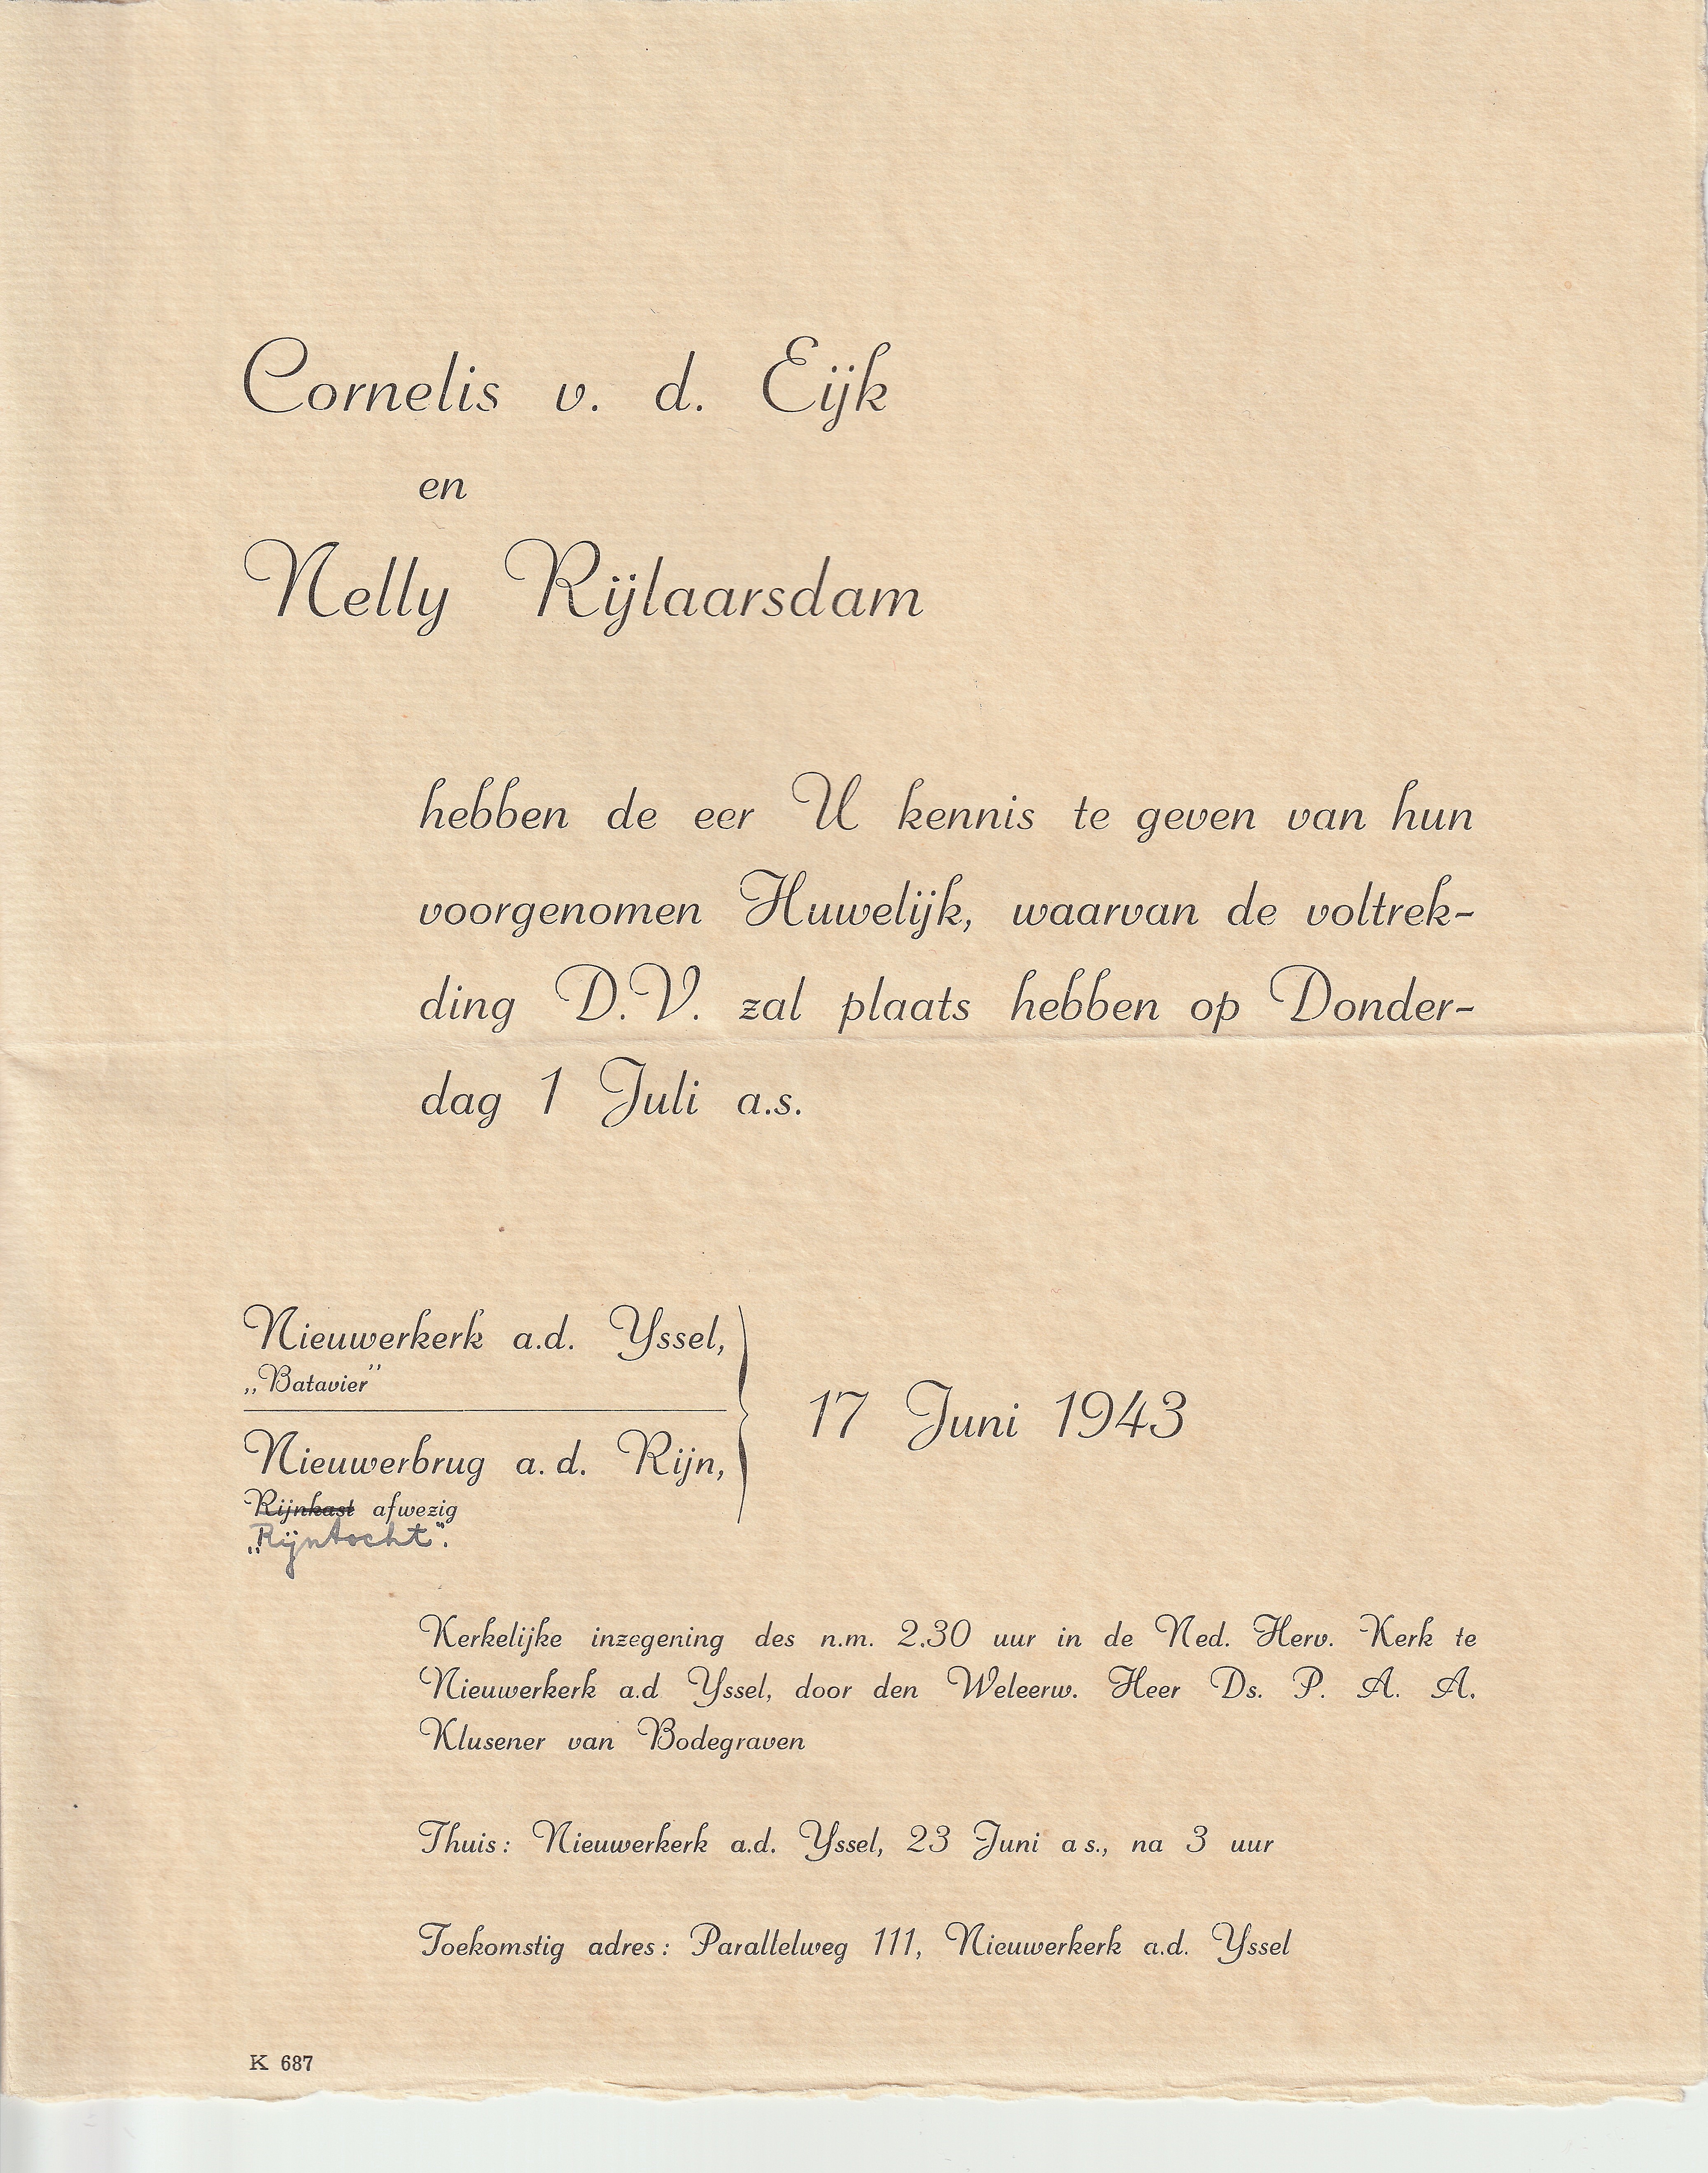 Cornelis v. d. Eijk
en
Nelly Rijlaarsdam
hebben de eer U kennis te geven van hun
voorgenomen Huwelijk, waarvan de voltrek-
ding D.V. zal plaats hebben op Donder-
dag 1 Juli a.s.
Nieuwerkerk a.d. Yssel,
„Batavier”
17 Juni 1943
Nieuwerbrug a. d. Rijn,
Rijnkast afwezig
„Rijntocht".
Kerkelijke inzegening des n.m. 2.30 uur in de Ned. Herv. Kerk te
Nieuwerkerk a.d Yssel, door den Weleerw. Heer Ds. P. A. A.
Klusener van Bodegraven
Thuis: Nieuwerkerk a.d. Yssel, 23 Juni a s., na 3 uur
Toekomstig adres: Parallelweg 111, Nieuwerkerk a.d. Yssel
K 687